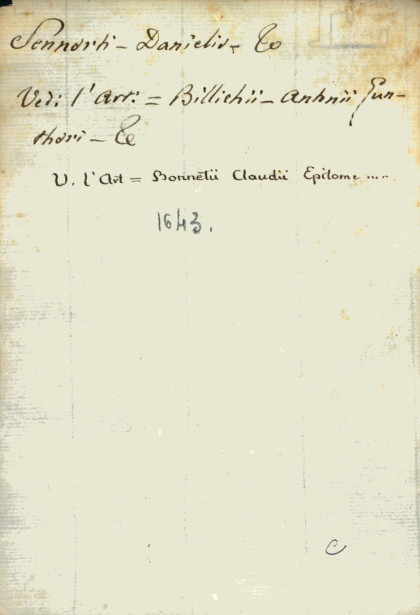 Sennerti - Danielis - &c
Vedi l'Art: = Billichii - Anhnii Gun-
theri - &c
V. l'Art = Bonnetii Claudii Epitome ....
1643.
C